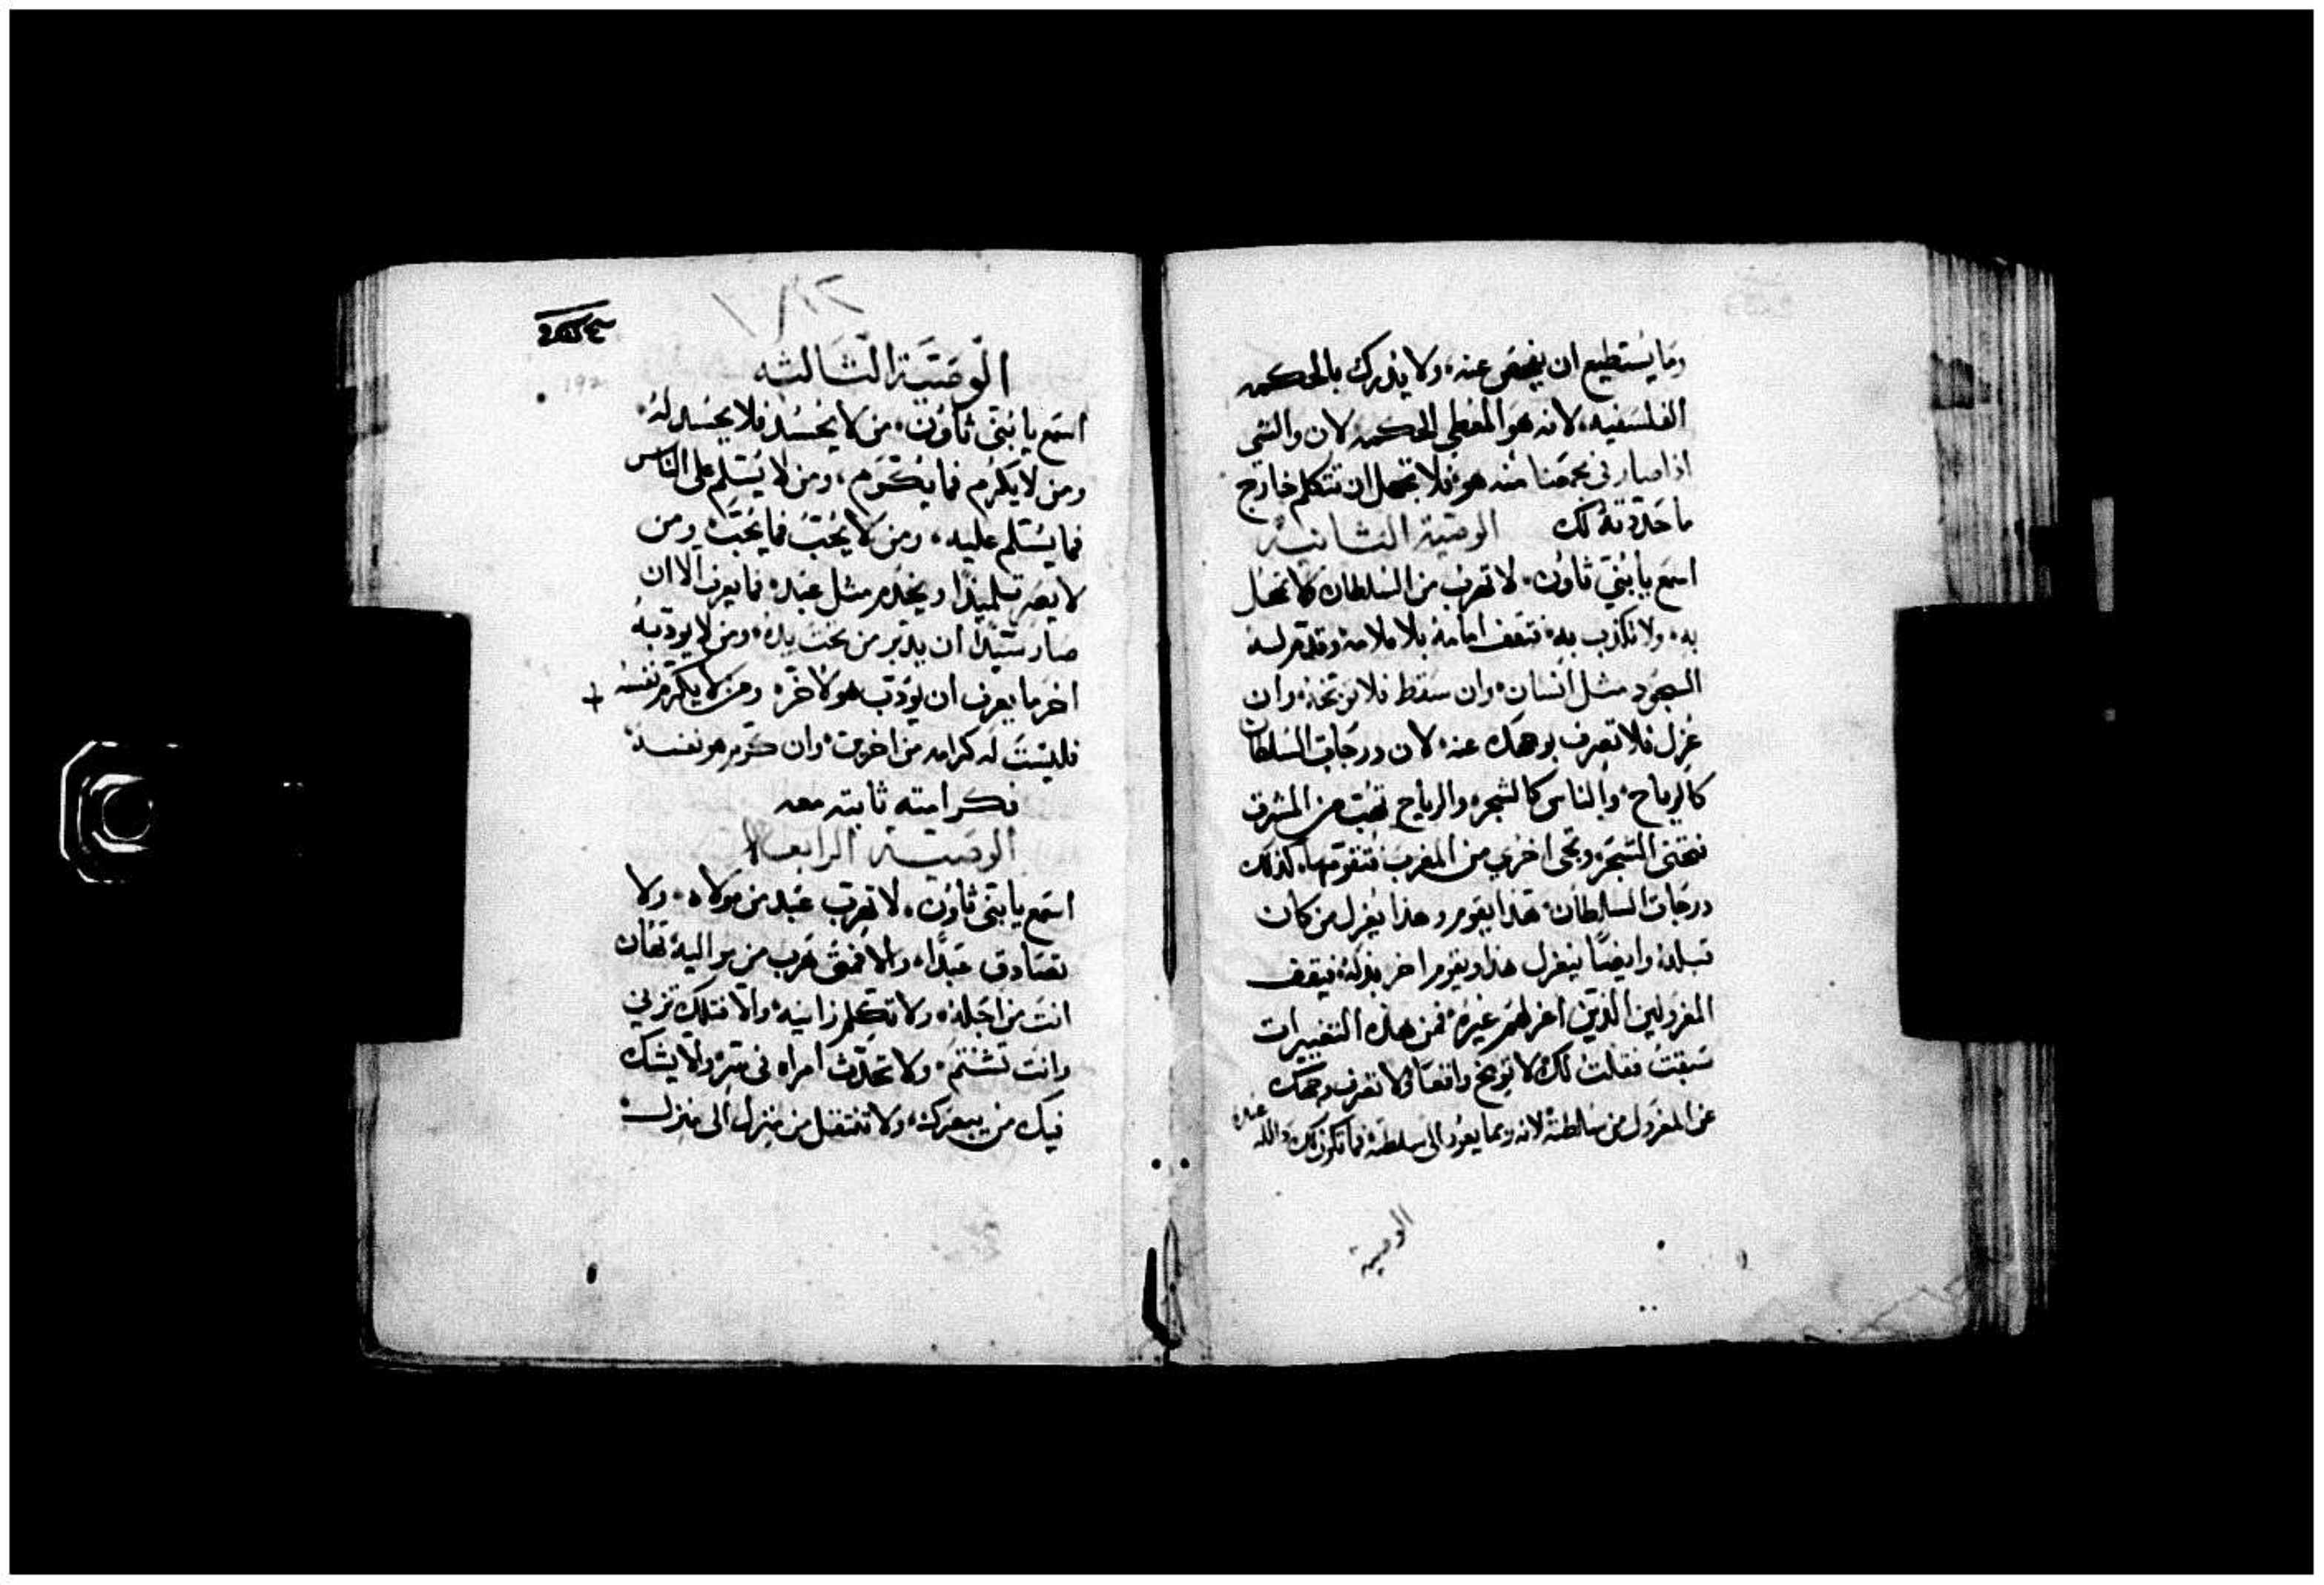 وما يستطيع ان يفحص عنه، ولا يدرك بالحكمه
الفلسفيه، لانه هو المعطي الحكمه لان والشي
اذا صار في نحمضنا منه هو فلا تجهل ان تتكلم خارج
ما حددته لك الوصية الثانية
اسمع يا بني ثاون، لا تهرب من السلطان كالجهل
به، ولا تكذب به، فتقف امامه بلا ملامه وقدم له
السجود مثل انسان، وان سقط فلا توبخه، وان
عزل فلا تصرف بوجهك عنه، لان درجات السلطان
كالرياح، والناس كالشجر، والرياح تهب من المشرق
فتحني الشجر، وتجي اخري من المغرب فتقومها، كذلك
درجات السلطان، هذا يقوم وهذا يعزل من كان
قبله، وايضا ينعزل هذا ويقوم اخر بدله، فيقف
المعزولين الذين اعزلهم غيره، فمن هذه التغييرات
سبقت فقلت لك لا توبخ واقعا ولا تصرف وجهك
عن المعزول من سلطنة لانه ربما يعود الى سلطنه فما تكون لك دالله عنده
الوصية
الوصية الثالثه
اسمع يا بني ثاون، من لا يحسد فلا يحسد له،
ومن لا يكرم فما يكرم، ومن لا يسلم على الناس
فما يسلم عليه، ومن لا يحب فما يحب، ومن
لا يصر تلميذا ويخدم مثل عبد، فما يعرف الا ان
صار سيدا ان يدبر من تحت يده، ومن لا يودبه
اخر ما يعرف ان يودب هو لاخر، ومن لا يكرم نفسه
فليست له كرامه من اخرين، وان كرم هو نفسه
فكرامته ثابته معه
الوصية الرابعة
اسمع يا بني ثاون، لا تهرب عبد من مولاه، ولا
تصادق عبدا، والا فمتى هرب من مواليه تهان
انت من اجله، ولا تكلم زانيه، والا فتلك تزني
وانت تشتم، ولا تحدث امراه في سر، والا يشك
فيك من يبصرك، ولا تنتقل من منزل الى منزل